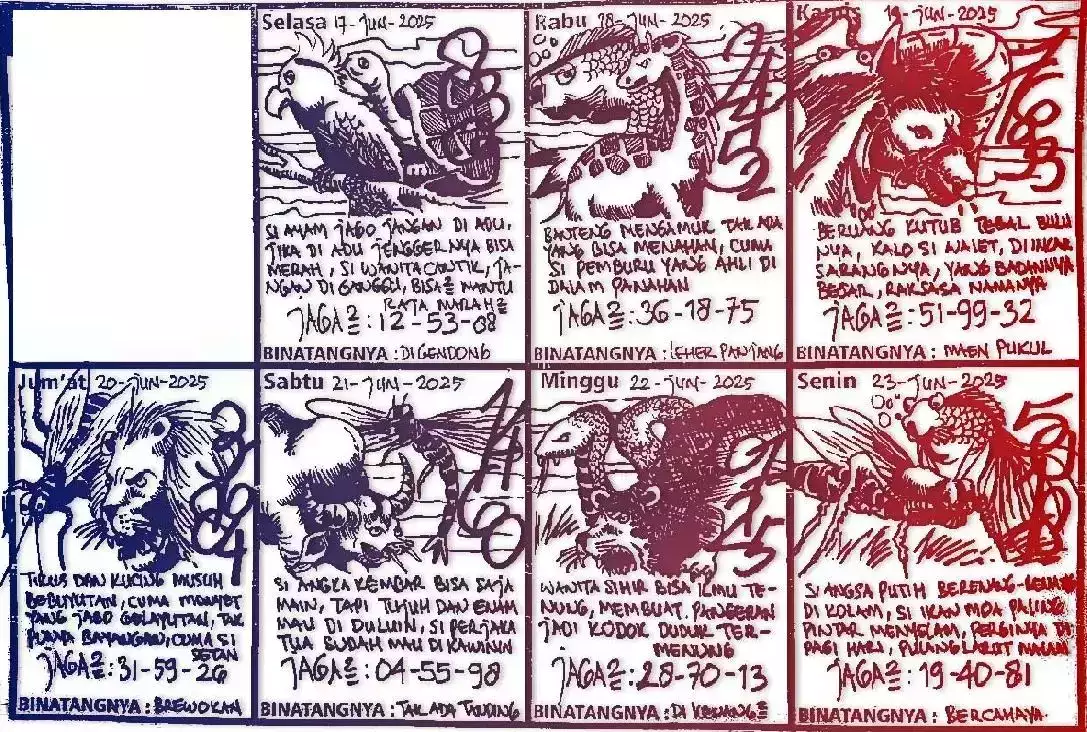 Selasa 17-JUN-2025
SI AYAM JAGO JANGAN DI ADU,
JIKA DI ADU JENGGERNYA BISA
MERAH, SI WANITA CANTIK, JA-
NGAN DI GANGGU, BISA2 MANTU
RATA MARAH2
JAGA2 : 12-53-08
BINATANGNYA : DIGENDONG
Rabu 18-JUN-2025
BANTENG MENGAMUK TAK ADA
YANG BISA MENAHAN, CUMA
SI PEMBURU YANG AHLI DI
DALAM PANAHAN
JAGA2 : 36-18-75
BINATANGNYA : LEHER PANJANG
Kamis 19-JUN-2025
BERUANG KUTUB TEBAL BULU
NYA, KALO SI WALET, DIINCAR
SARANGNYA, YANG BADANNYA
BESAR, RAKSASA NAMANYA
JAGA2 : 51-99-32
BINATANGNYA : MAEN PUKUL
Jum'at 20-JUN-2025
TIKUS DAN KUCING MUSUH
BEBUYUTAN, CUMA MONYET
YANG JAGO GELAYUTAN, TAK
PUNYA BAYANGAN, CUMA SI
SETAN
JAGA2 : 31-59-26
BINATANGNYA : BREWOKAN
Sabtu 21-JUN-2025
SI ANGKA KEMBAR BISA SAJA
MAIN, TAPI TUJUH DAN ENAM
MAU DI DULUIN, SI PERJAKA
TUA SUDAH MAU DI KAWININ
JAGA2 : 04-55-98
BINATANGNYA : TAK ADA TANDING
Minggu 22-JUN-2025
WANITA SIHIR BISA ILMU TE-
NUNG, MEMBUAT PANGERAN
JADI KODOK DUDUK TER-
MENUNG
JAGA2 : 28-70-13
BINATANGNYA : DI KENANG2
Senin 23-JUN-2025
SI ANGSA PUTIH BERENANG-RENANG
DI KOLAM, SI IKAN MOA PALING
PINTAR MENYELAM, PERGINYA
PAGI HARI, PULANG LARUT MALAM
JAGA2 : 19-40-81
BINATANGNYA : BERCAHAYA